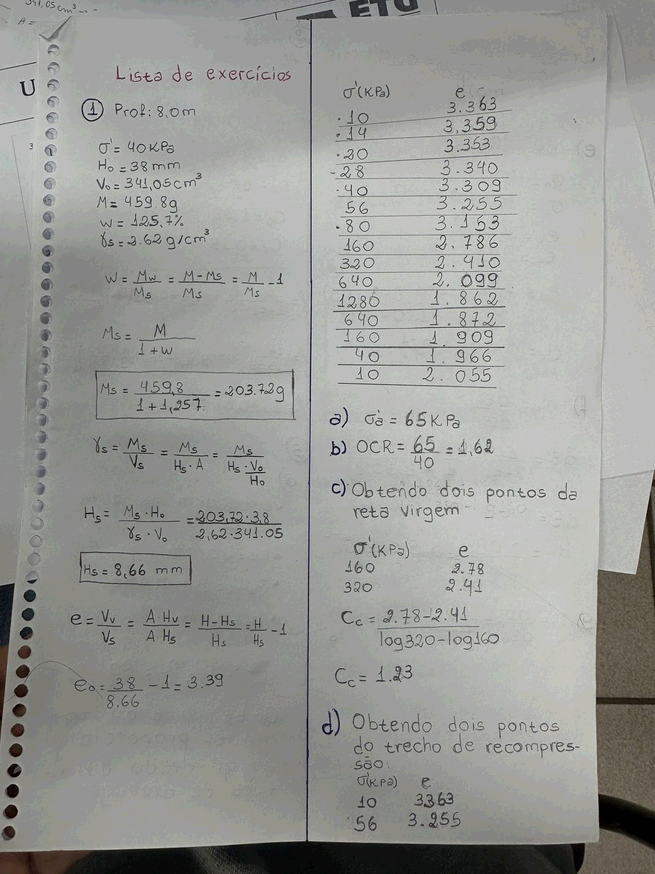 41,05cm³
A=
ETU
U
Lista de exercícios
① Prof: 8.0m
σ' = 40 KPa
H₀ = 38 mm
V₀ = 341,05 cm³
M = 459.8g
w = 125,7%
γs = 2.62 g/cm³
W = Mw/Ms = M-Ms/Ms = M/Ms - 1
Ms = M/1+w
Ms = 459,8/1+1,257 = 203.72g
γs = Ms/Vs = Ms/Hs·A = Ms/Hs·V₀/H₀
Hs = Ms·H₀/γs·V₀ = 203,72·3.8/2,62·341.05
Hs = 8,66 mm
e = Vv/Vs = A·Hv/A·Hs = H-Hs/Hs = H/Hs - 1
e₀ = 38/8.66 - 1 = 3.39
σ'(KPa) e
·10 3.363
·14 3,359
·20 3.353
-28 3.340
·40 3.309
56 3.255
·80 3.153
160 2.786
320 2.410
640 2.099
1280 1.862
640 1.872
160 1.909
40 1.966
10 2.055
a) σ'a = 65 KPa
b) OCR = 65/40 = 1,62
c) Obtendo dois pontos da
reta virgem
σ'(KPa) e
160 2.78
320 2.41
Cc = 2.78-2.41/log320-log160
Cc = 1.23
d) Obtendo dois pontos
do trecho de recompres-
são:
σ'(KPa) e
10 3363
56 3.255